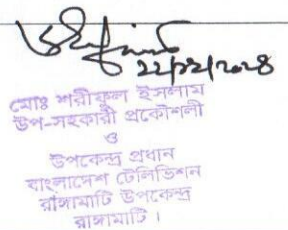 ২২/১২/২০২৪
মোঃ শরীফুল ইসলাম
উপ-সহকারী প্রকৌশলী
ও
উপকেন্দ্র প্রধান
বাংলাদেশ টেলিভিশন
রাঙ্গামাটি উপকেন্দ্র
রাঙ্গামাটি।